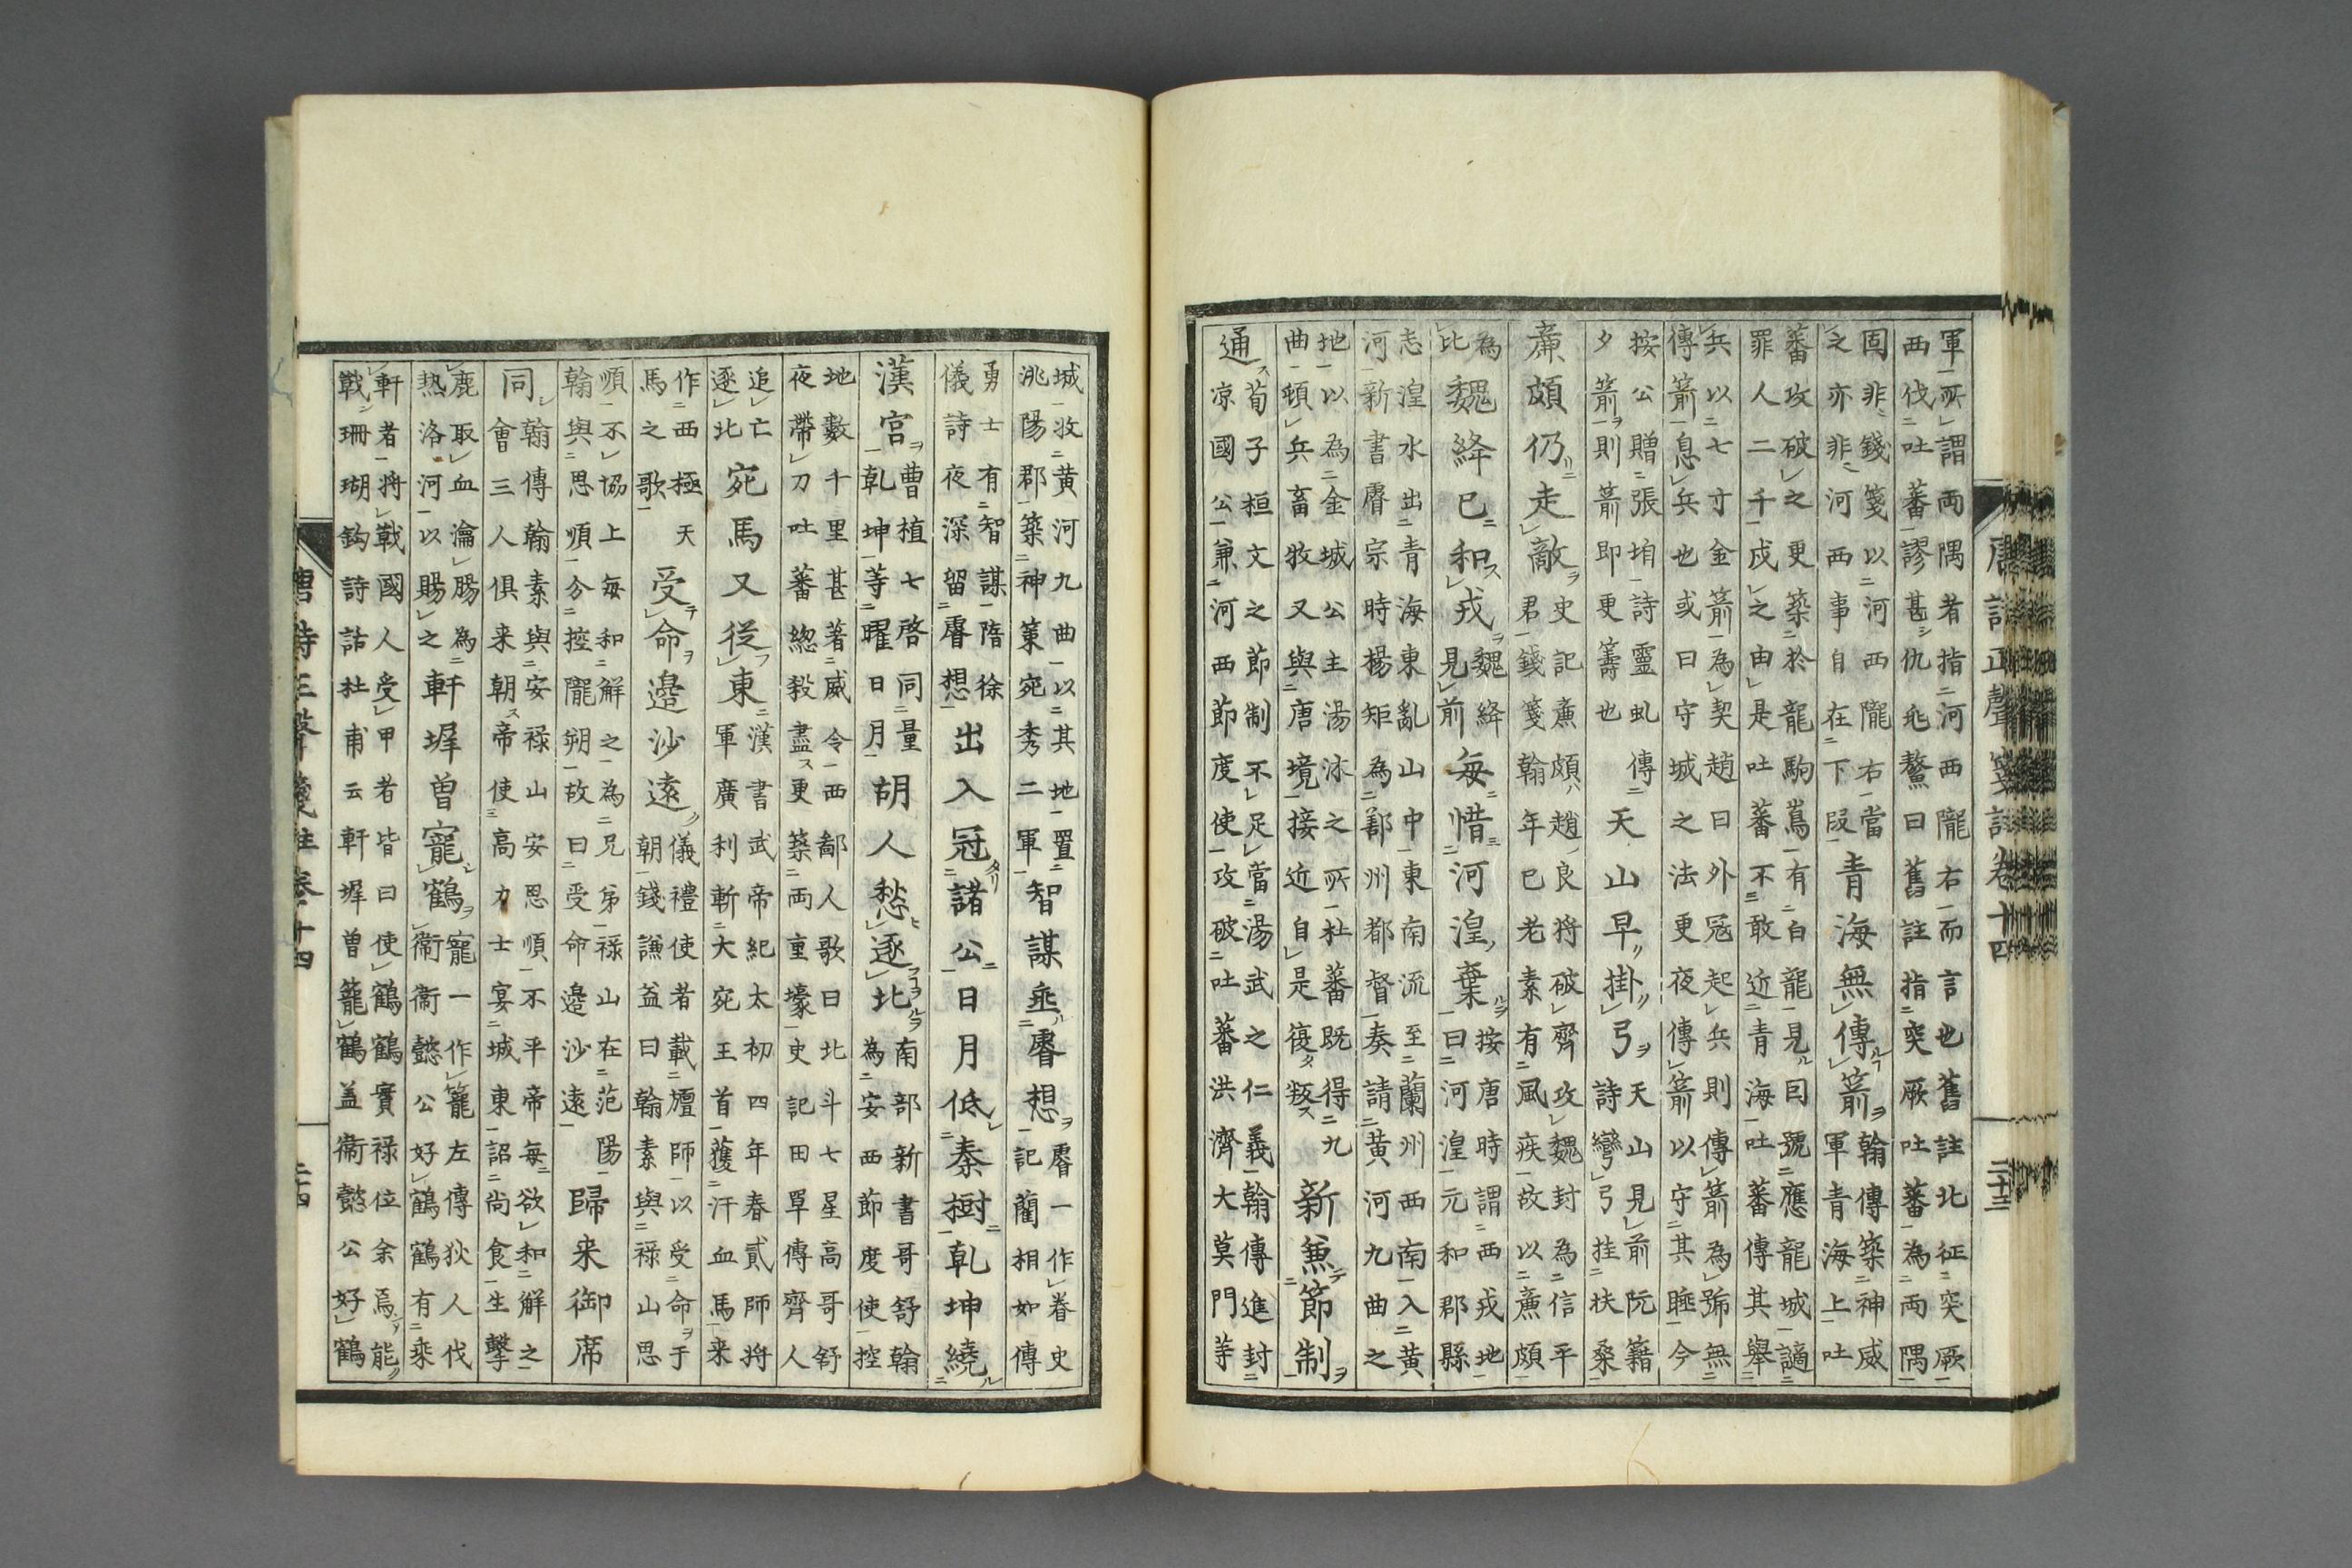 軍所謂兩隅者指河西隴右而言也舊註北征突厥
西伐吐蕃謬甚仇兆鰲曰舊註指突厥吐蕃為兩隅
固非錢箋以河西隴右當
之亦非河西事自在下段
青海無傳箭
翰傳築神威
軍青海上吐
蕃攻破之更築於龍駒嶌有白龍見因號應龍城謫
罪人二千戍之由是吐蕃不敢近青海吐蕃傳其舉
兵以七寸金箭為契趙曰外冦起兵則傳箭為號無
傳箭息兵也或曰守城之法更夜傳箭以守其睡今
按公贈張垍詩靈虬傳
夕箭則箭即更籌也
天山早掛弓
天山見前阮籍
詩彎弓挂扶桑
廉頗仍走敵
史記廉頗趙良將破齊攻魏封為信平
君錢箋翰年已老素有風疾故以廉頗
為
比
魏絳已和戎
魏絳
見前
每惜河湟棄
按唐時謂西戎地
曰河湟元和郡縣
志湟水出青海東亂山中東南流至蘭州西南入黄
河新書睿宗時楊矩為鄯州都督奏請黄河九曲之
地以為金城公主湯沐之所杜蕃既得九
曲頓兵畜牧又與唐境接近自是復叛
新兼節制
通
荀子桓文之節制不足當湯武之仁義翰傳進封
凉國公兼河西節度使攻破吐蕃洪濟大莫門等
唐詩正聲箋註卷十四
二十三
城收黄河九曲以其地置
洮陽郡築神策宛秀二軍
智謀垂睿想
睿一作眷史
記藺相如傳
勇士有智謀隋徐
儀詩夜深留睿想
出入冠諸公日月低秦樹乾坤繞
漢宮
曹植七啓同量
乾坤等曜日月
胡人愁逐北
南部新書哥舒翰
為安西節度使控
地數千里甚著威令西鄙人歌曰北斗七星高哥舒
夜帶刀吐蕃總殺盡更築兩重壕史記田單傳齊人
追亡
逐北
宛馬又從東
漢書武帝紀太初四年春貳師將
軍廣利斬大宛王首獲汗血馬来
作西極天
馬之歌
受命邉沙遠
儀禮使者載旜師以受命于
朝錢謙益曰翰素與祿山思
順不協上每和解之為兄弟祿山在范陽
翰與思順分控隴朔故曰受命邉沙遠
歸来御席
同
翰傳翰素與安祿山安思順不平帝每欲和解之
會三人俱来朝帝使高力士宴城東詔尚食生擊
鹿取血瀹腸為
熱洛河以賜之
軒墀曽寵鶴
寵一作籠左傳狄人伐
衞衞懿公好鶴鶴有乘
軒者將戰國人受甲者皆曰使鶴鶴實祿位余焉能
戰珊瑚鈎詩話杜甫云軒墀曽籠鶴盖衞懿公好鶴
卷十四